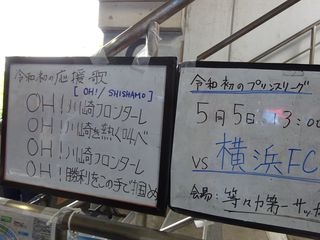 令和初の応援歌
[OH!/SHISHAMO]
OH!川崎フロンターレ
OH!川崎を熱く叫べ
OH!川崎フロンターレ
OH!勝利をこの手で掴め
令和初のプリンスリーグ
5月5日 13:00
VS 横浜FC
会場: 等々力第一サッカ